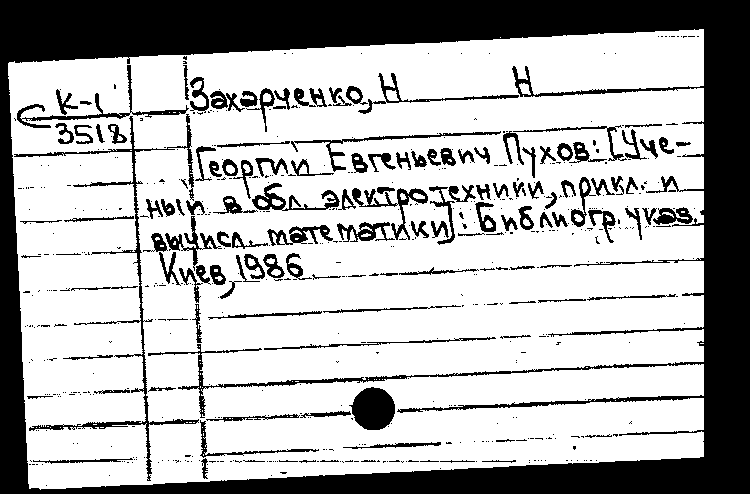 К-1
3518
Захарченко, Н Н
Георгий Евгеньевич Пухов: [Уче-
ный в обл. электротехники, прикл. и
вычисл. математики]: Библиогр. указ.-
Киев, 1986.